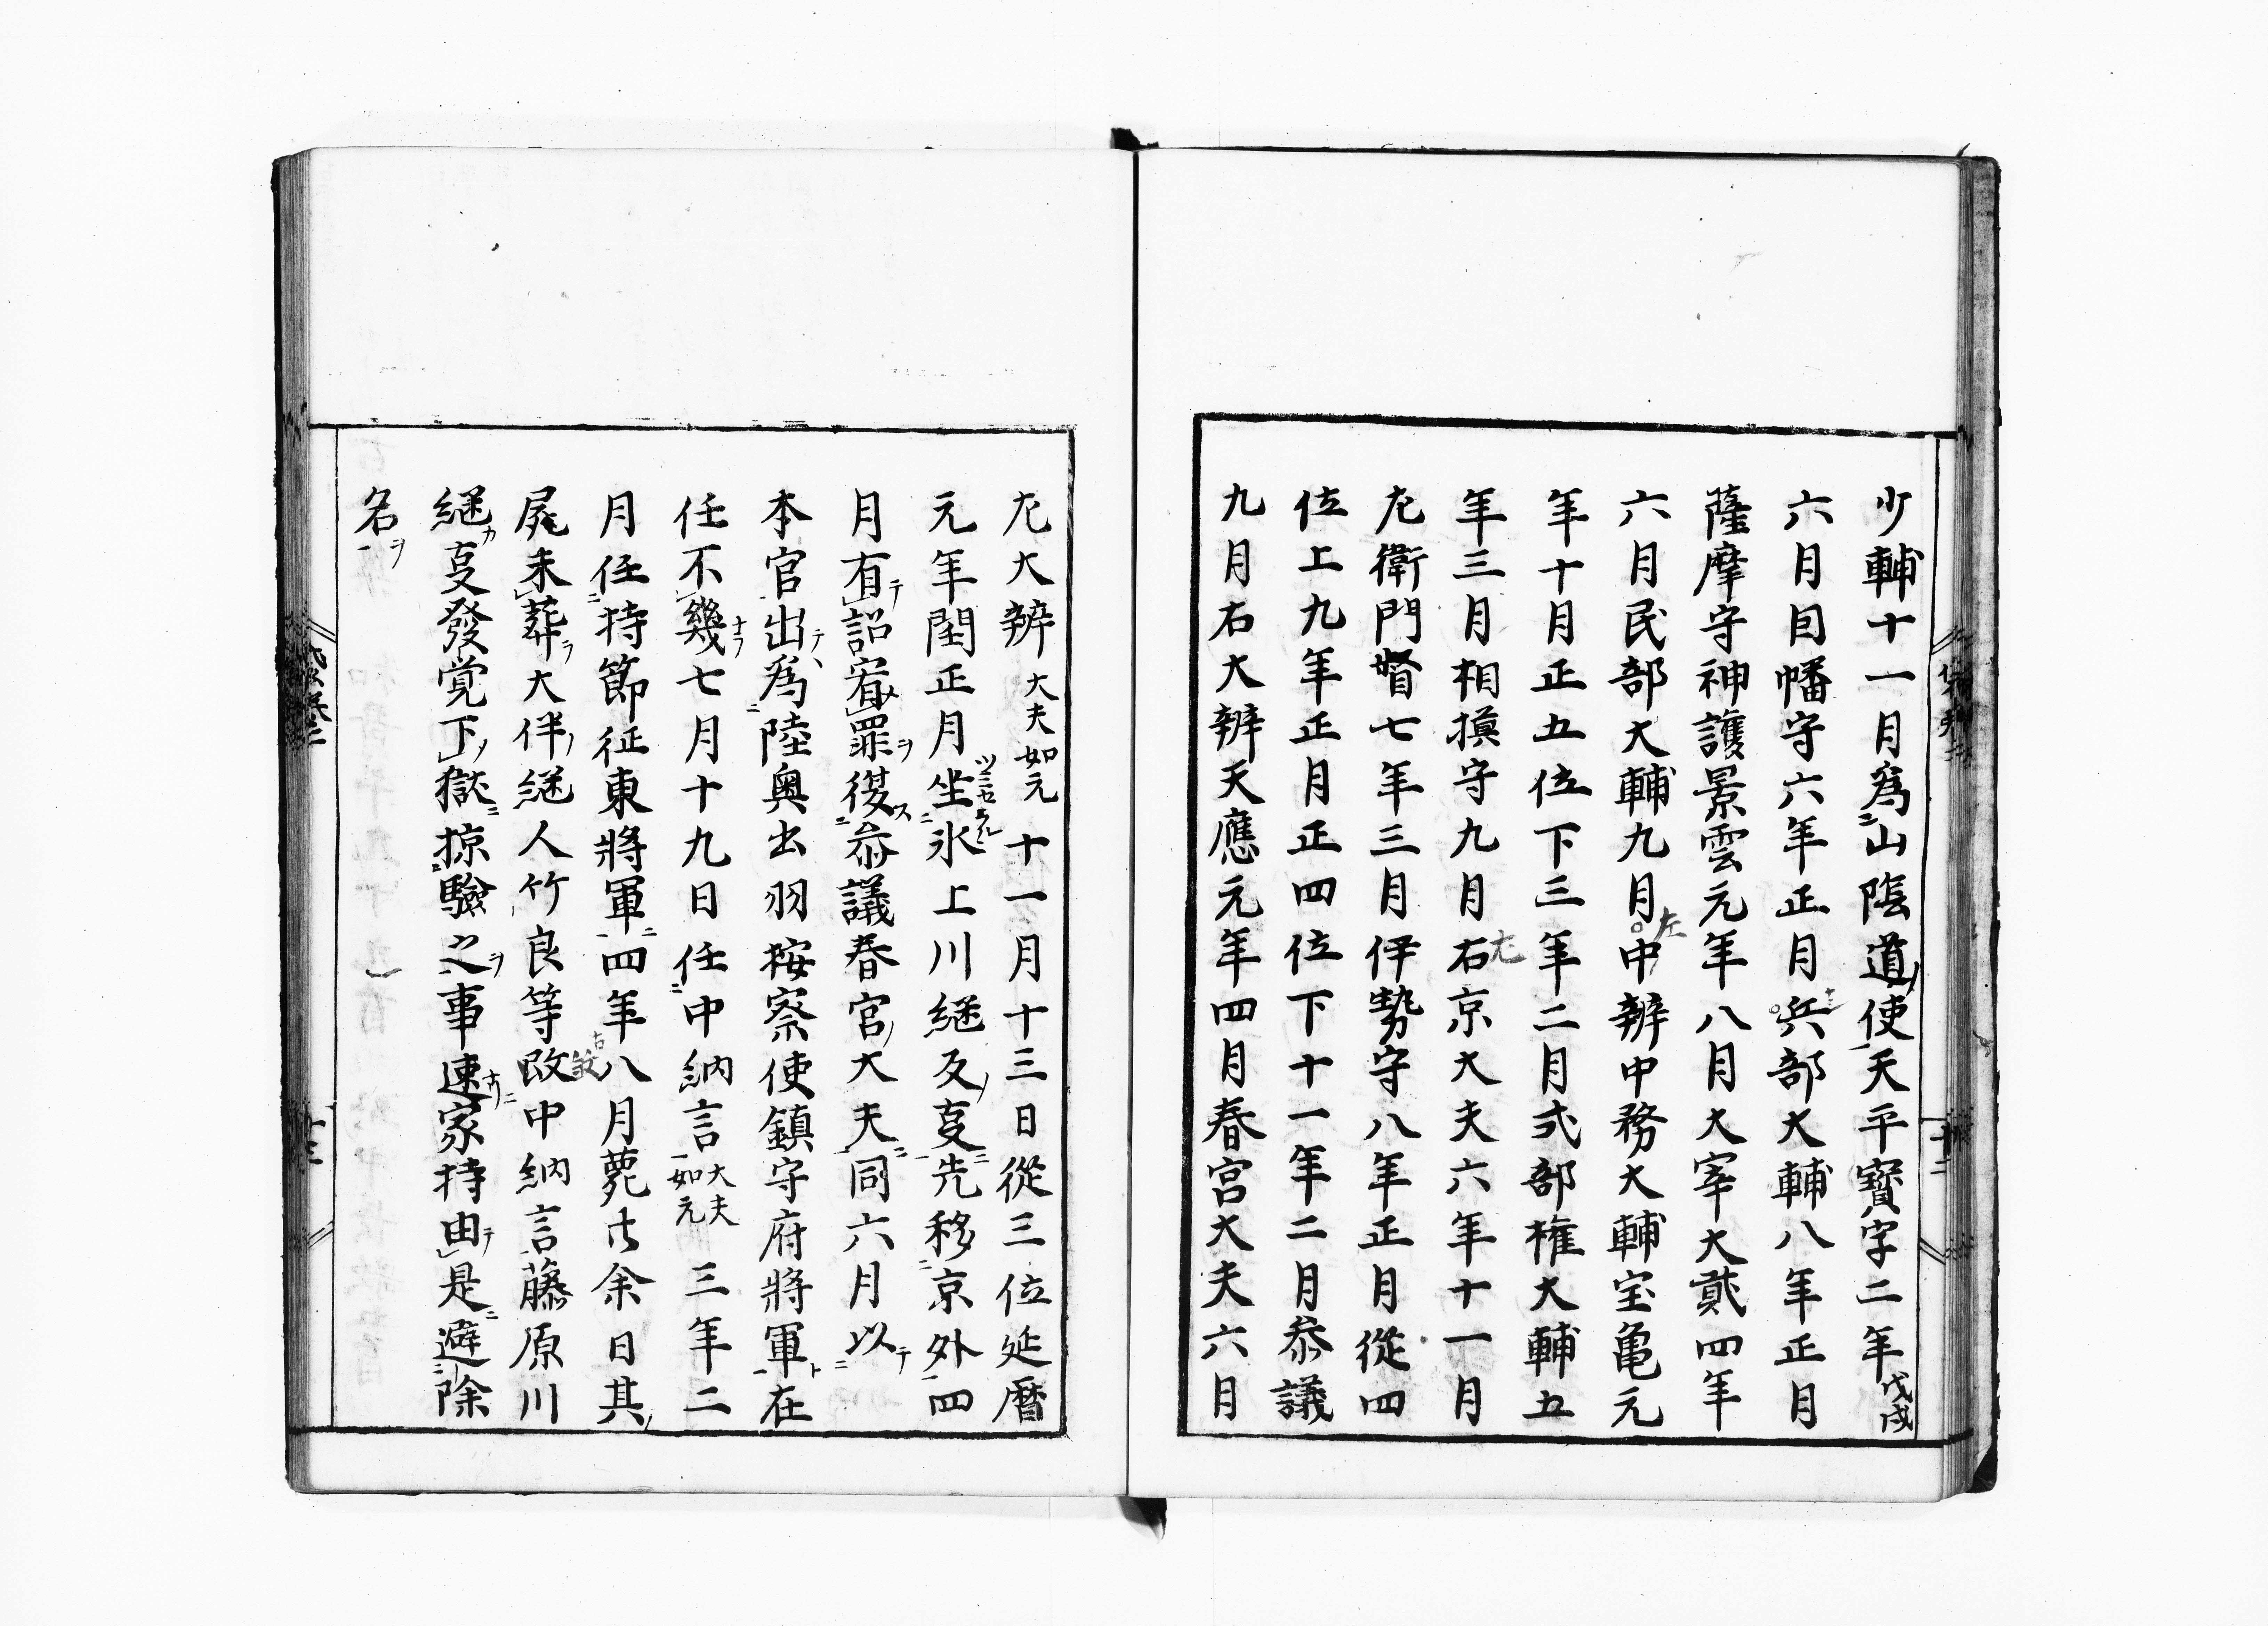 少輔十一月為山陰道使天平寳字二年戊戌
六月因幡守六年正月兵部大輔八年正月
薩摩守神護景雲元年八月大宰大貳四年
六月民部大輔九月左中辨中務大輔宝亀元
年十月正五位下三年二月式部権大輔五
年三月相摸守九月右左京大夫六年十一月
左衛門督七年三月伊勢守八年正月從四
位上九年正月正四位下十一年二月叅議
九月右大辨天應元年四月春宮大夫六月
左大辨大夫如元十一月十三日從三位延暦
元年閏正月坐氷上川継反夏先移京外四
月有詔宥罪復叅議春宮大夫同六月以
本官出為陸奥出羽按察使鎮守府將軍在
任不幾七月十九日任中納言大夫如元三年二
月任持節征東將軍四年八月薨廿余日其
屍未葬大伴継人竹良等殴中納言藤原川
継夏發覚下獄掠驗之事連家持由是避除
名